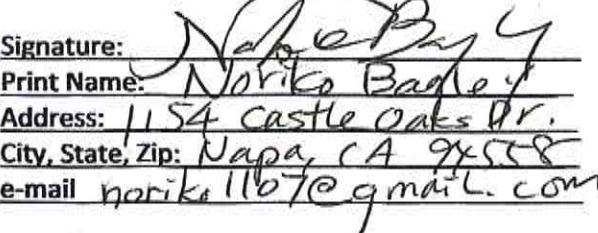 Signature:
Print Name: Noriko Bagley
Address: 1154 Castle Oaks Dr.
City, State, Zip: Napa, CA 94558
e-mail noriko1107@gmail.com